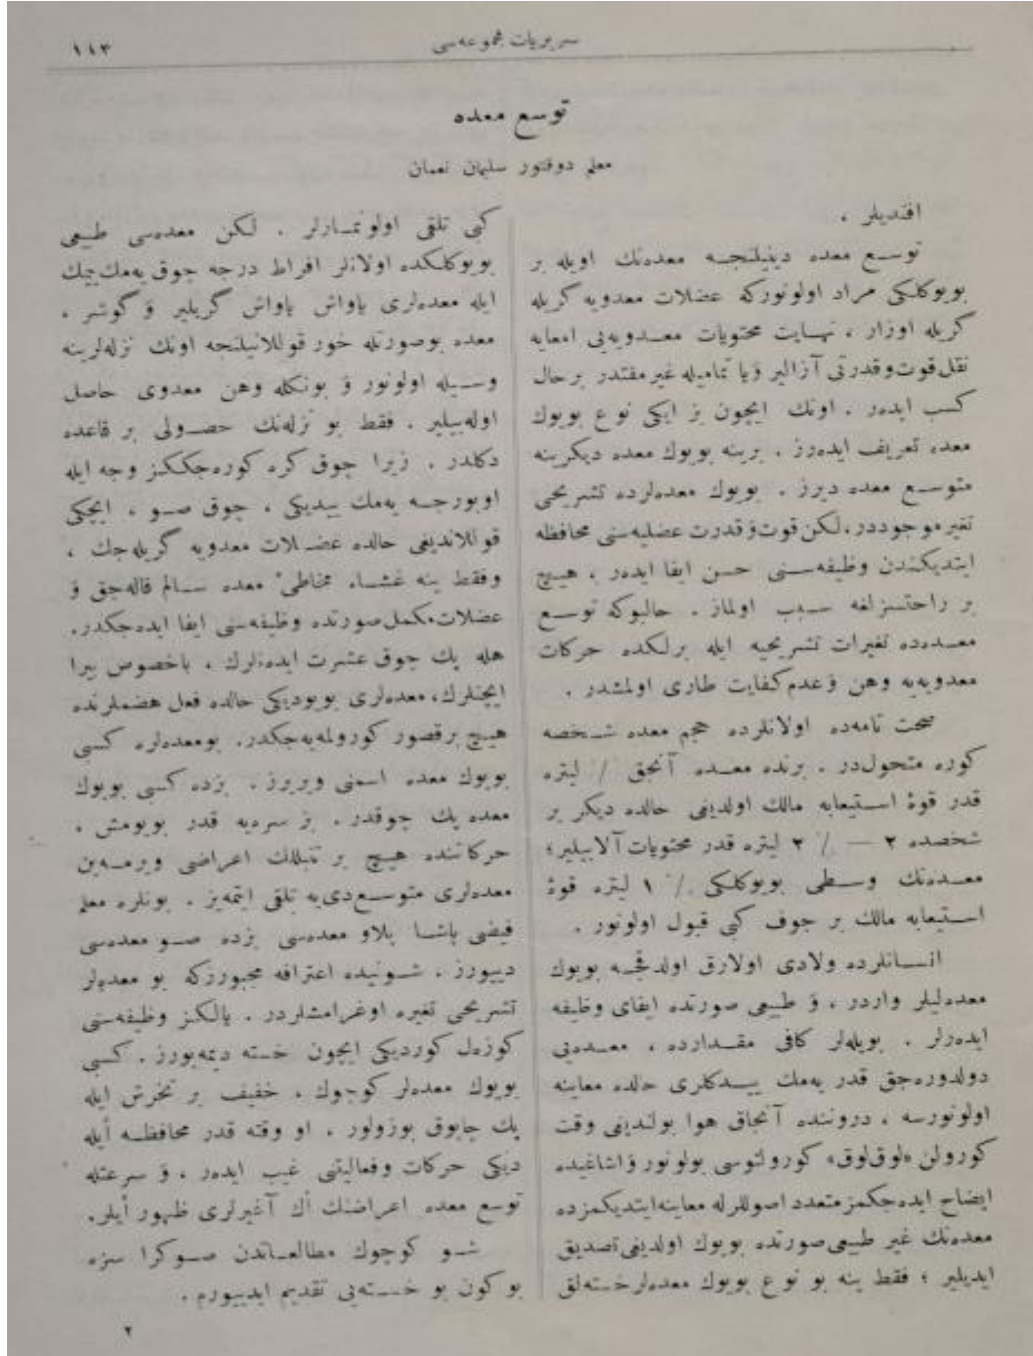 سریریات مجموعه‌سی
۱۱۳
توسع معده
معلم دوقتور سلیمان نعمان
افندیلر ،
توسع معده دینیلنجه معده‌نك اویله بر
بویوكلكی مراد اولونوركه عضلات معدویه گریله
گریله اوزار ، نهایت محتویات معدویه‌یی امعایه
نقل قوت وقدرتی آزالیر ؤیا تمامیله غیر مقتدر بر حال
كسب ایدەر . اونك ایچون بز ایكی نوع بویوك
معده تعریف ایدەرز . برینه بویوك معده دیگرینه
متوسع معده دیرز . بویوك معده‌لرده تشریحی
تغیر موجوددر، لكن قوت ؤ قدرت عضلیه‌سنی محافظه
ایتدیكندن وظیفه‌سنی حسن ایفا ایدەر ، هیچ
بر راحتسزلغه سبب اولماز . حالبوكه توسع
معده‌ده تغیرات تشریحیه ایله برلكده حركات
معدویه‌یه وهن ؤ عدم كفایت طاری اولمشدر .
صحت تامه‌ده اولانلرده حجم معده شخصه
كوره متحول‌در . برنده معده آنجق / لیتره
قدر قوۀ استیعابه مالك اولدیغی حالده دیگر بر
شخصده ۲ — / ۲ لیتره قدر محتویات آلابیلیر؛
معده‌نك وسطی بویوكلكی / ۱ لیتره قوۀ
استیعابه مالك بر جوف كبی قبول اولونور .
انسانلرده ولادی اولارق اولدقجه بویوك
معده‌لیلر واردر ، ؤ طبیعی صورتده ایفای وظیفه
ایدەرلر . بویله‌لر كافی مقدارده ، معده‌یی
دولدوره‌جق قدر یه‌مك ییدكلری حالده معاینه
اولونورسه ، دروننده آنجاق هوا بولندیغی وقت
كورولن «لوق‌لوق» كورولتوسی بولونور ؤ اشاغیده
ایضاح ایده‌جكمز متعدد اصوللرله معاینه ایتدیكمزده
معده‌نك غیر طبیعی صورتده بویوك اولدیغی تصدیق
ایدیلیر ؛ فقط ینه بو نوع بویوك معده‌لر خسته‌لق
كبی تلقی اولونمازلر . لكن معده‌سی طبیعی
بویوكلكده اولانلر افراط درجه چوق یه‌مك ییمك
ایله معده‌لری یاواش یاواش گریلیر ؤ گوشر ،
معده بوصورتله خور قوللانیلنجه اونك نزله‌لرینه
وسیله اولونور ؤ بونكله وهن معدوی حاصل
اوله‌بیلیر . فقط بو نزله‌نك حصولی بر قاعده
دكلدر . زیرا چوق كره كوره‌جككز وجه ایله
اوبورجه یه‌مك ییدیكی ، چوق صو ، ایچكی
قوللاندیغی حالده عضلات معدویه گریله‌جك ،
وفقط ینه غشاء مخاطیٔ معده سالم قاله‌جق ؤ
عضلات، مكمل صورتده وظیفه‌سنی ایفا ایده‌جكدر.
هله پك چوق عشرت ایدەنلرك ، باخصوص بیرا
ایچنلرك، معده‌لری بویودیكی حالده فعل هضملرنده
هیچ بر قصور كورولمه‌یه‌جكدر. بومعده‌لره كسبی
بویوك معده اسمنی ویریرز . بزده كسبی بویوك
معده پك چوقدر . بز سره‌یه قدر بویومش ،
حركاتنده هیچ بر تنبللك اعراضی ویرمه‌ین
معده‌لری متوسع دی‌یه تلقی ایتمه‌یز . بونلره معلم
فیضی پاشا پلاو معده‌سی بزده صو معده‌سی
دییورز . شونیده اعترافه مجبورزكه بو معده‌لر
تشریحی تغیره اوغرامشلردر . یالكنز وظیفه‌سنی
كوزەل كوردیكی ایچون خسته دیمه‌یورز . كسبی
بویوك معده‌لر كوچوك ، خفیف بر تخرش ایله
پك چابوق بوزولور . او وقته قدر محافظه أیله
دیكی حركات وفعالیتی غیب ایدەر ، ؤ سرعتله
توسع معده اعراضنك أك آغیرلری ظهور أیلر.
شو كوچوك مطالعاتدن صوكرا سزه
بو كون بو خسته‌یی تقدیم ایدییورم .
۲